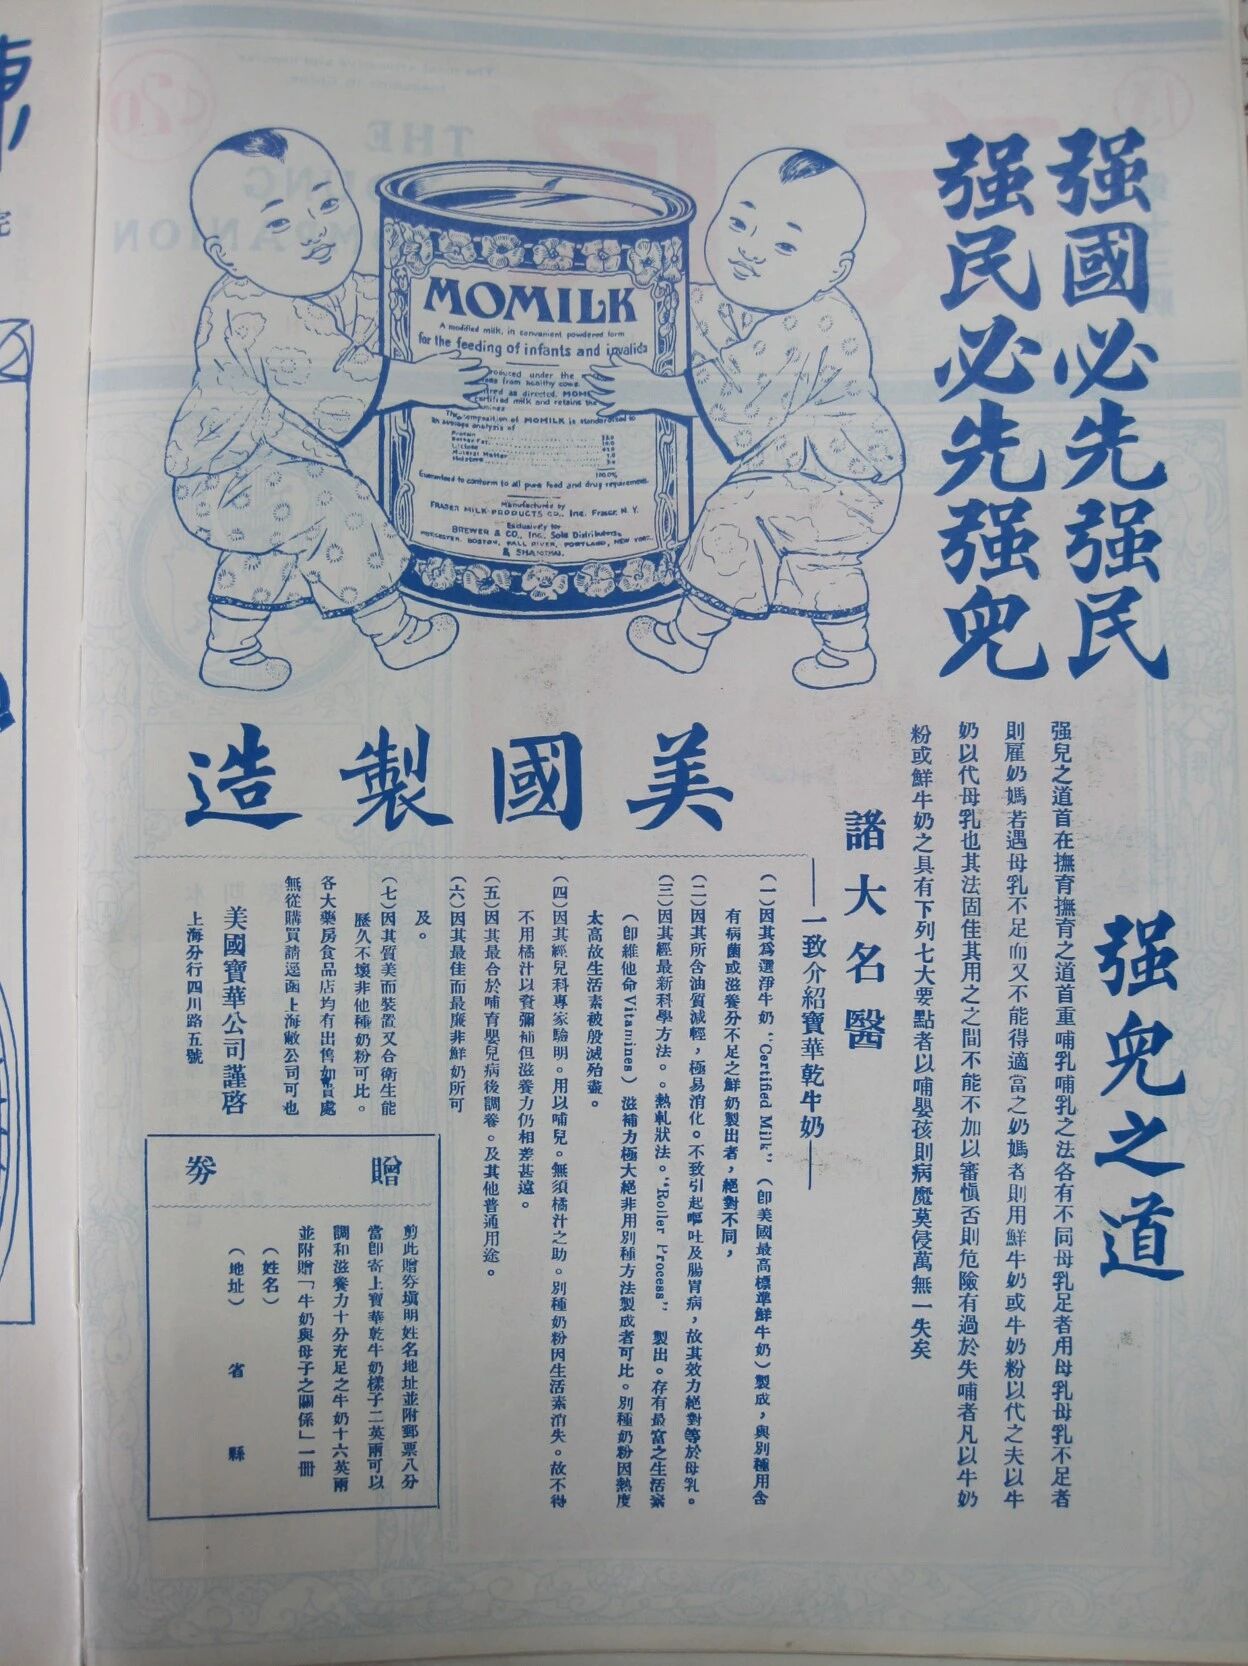 强國必先强民
强民必先强兒
MOMILK
A modified milk, in convenient powdered form
for the feeding of infants and invalids
The composition of MOMILK is standardized to
an average analysis of
Protein
Butter Fat
Lactose
Mineral Matter
Moisture
100.0%
Guaranteed to conform to all pure food and drug requirements.
Manufactured by
FRASER MILK PRODUCTS CO., Inc. Fraser, N. Y.
Exclusively for
BREWER & CO., Inc. Sole Distributors,
WORCESTER, BOSTON, FALL RIVER, PORTLAND, NEW YORK
& SHANGHAI.
强兒之道
强兒之道首在撫育撫育之道首重哺乳哺乳之法各有不同母乳足者用母乳母乳不足者
則雇奶媽若遇母乳不足而又不能得適當之奶媽者則用鮮牛奶或牛奶粉以代之夫以牛
奶以代母乳也其法固佳其用之之間不能不加以審愼否則危險有過於失哺者凡以牛奶
粉或鮮牛奶之具有下列七大要點者以哺嬰孩則病魔莫侵萬無一失矣
美國製造
諸大名醫
——一致介紹寶華乾牛奶——
(一)因其爲選淨牛奶“Certified Milk”(卽美國最高標準鮮牛奶)製成，與別種用含
有病菌或滋養分不足之鮮奶製出者，絕對不同，
(二)因其所含油質減輕，極易消化。不致引起嘔吐及腸胃病，故其效力絕對等於母乳。
(三)因其經最新科學方法。。熱軋狀法。“Roller Process” 製出。存有最富之生活素
(卽維他命Vitamines)滋補力極大絕非用別種方法製成者可比。別種奶粉因熱度
太高故生活素被殷滅殆盡。
(四)因其經兒科專家驗明。用以哺兒。無須橘汁之助。別種奶粉因生活素消失。故不得
不用橘汁以資彌補但滋養力仍相差甚遠。
(五)因其最合於哺育嬰兒病後調養。及其他普通用途。
(六)因其最佳而最廉非鮮奶所可
及。
(七)因其質美而裝置又合衛生能
歷久不壞非他種奶粉可比。
各大藥房食品店均有出售如貴處
無從購買請逕函上海敝公司可也
美國寶華公司謹啓
上海分行四川路五號
贈券
剪此贈券塡明姓名地址並附郵票八分
當卽寄上寶華乾牛奶樣子二英兩可以
調和滋養力十分充足之牛奶十六英兩
並附贈「牛奶與母子之關係」一冊
(姓名)
(地址) 省 縣